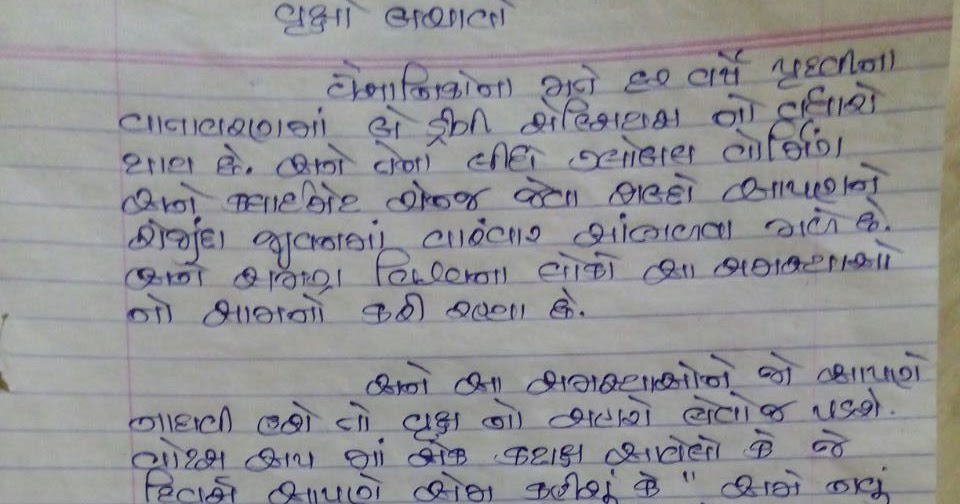 વૃક્ષો બચાવો
વૈજ્ઞાનિકોના મતે દર વર્ષે પૃથ્વીના
વાતાવરણમાં બે ડીગ્રી સેલ્સિયસ નો વધારો
થાય છે. અને તેના લીધે ગ્લોબલ વોર્મિંગ
અને ક્લાઈમેટ ચેન્જ જેવા શબ્દો આપણને
રોજીંદા જીવનમાં વારંવાર સાંભળવા મળે છે.
અને સમગ્ર વિશ્વના લોકો આ સમસ્યાઓ
નો સામનો કરી રહ્યા છે.
અને આ સમસ્યાઓને જો આપણે
નાથવી હશે તો વૃક્ષ નો સહારો લેવોજ પડશે.
વોટ્સ અપ માં એક કટાક્ષ આવેલો કે જે
દિવસે આપણે એમ કહીશું કે " અમે નવું